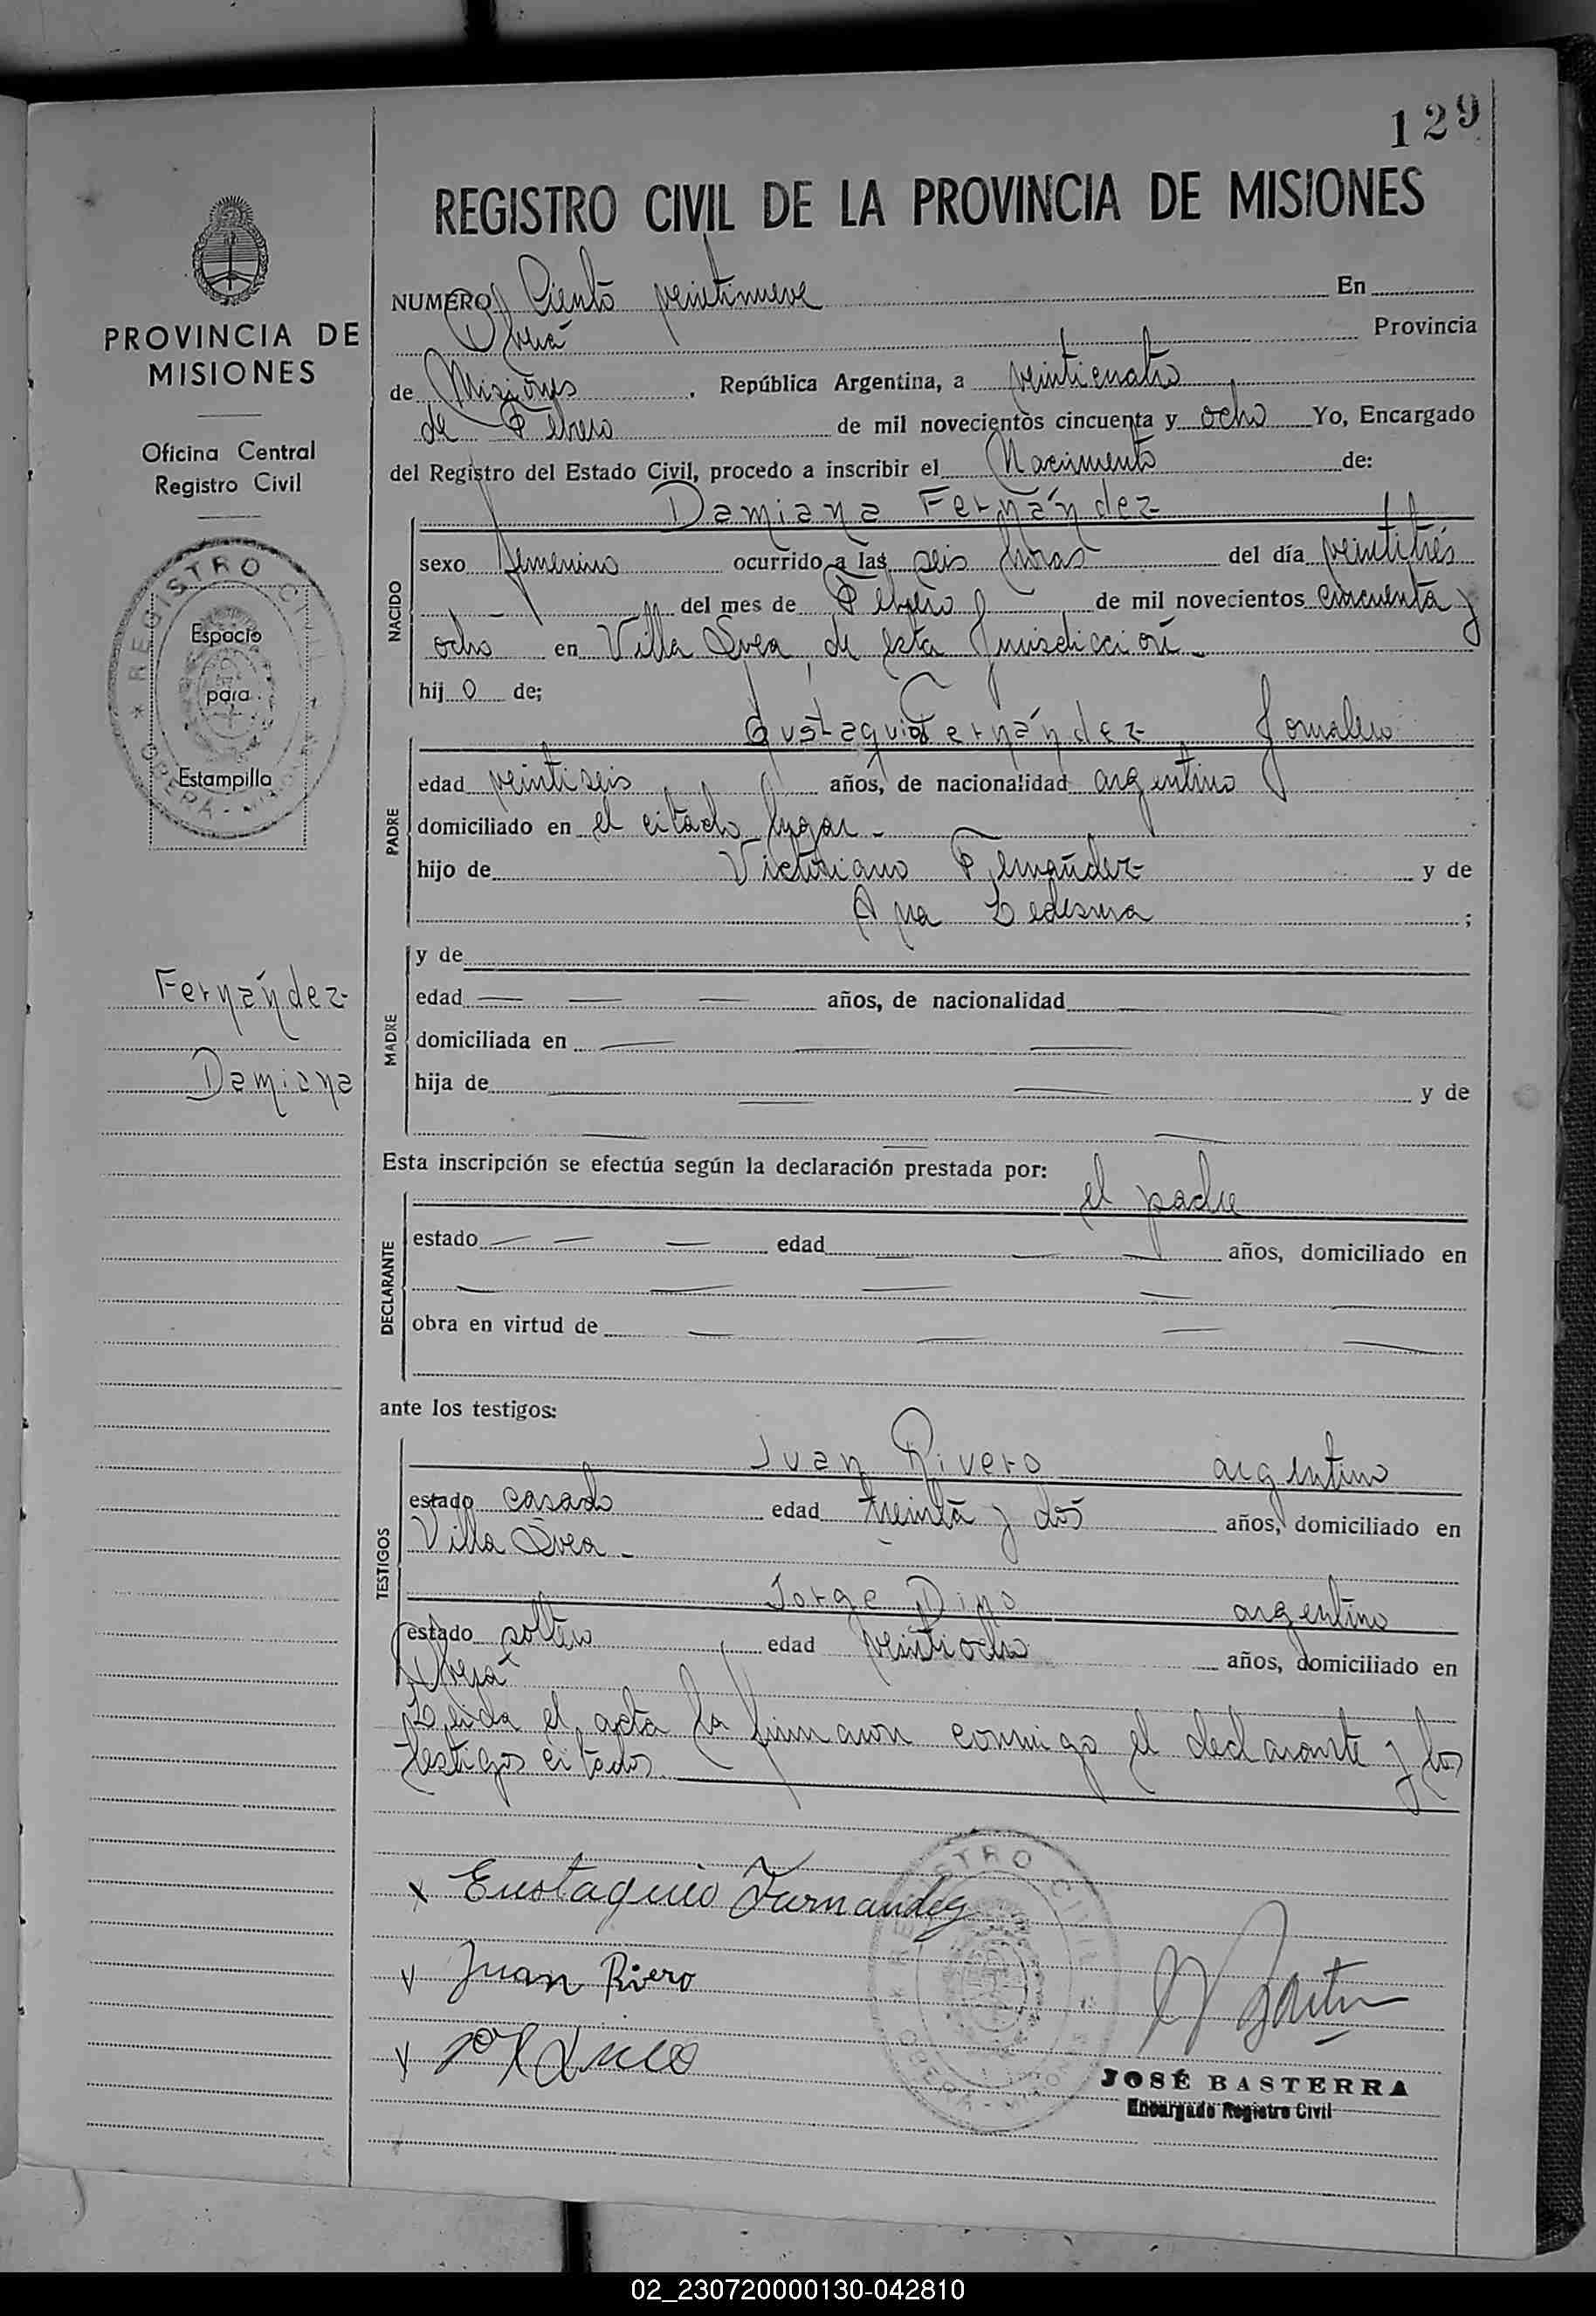 129
REGISTRO CIVIL DE LA PROVINCIA DE MISIONES
PROVINCIA DE
MISIONES
Oficina Central
Registro Civil
REGISTRO CIVIL
Espacio
para
Estampilla
OBERA - MISIONES
Fernández
Damiana
NUMERO Ciento veintinueve En
Oberá Provincia
de Misiones, República Argentina, a veinticuatro
de Febrero de mil novecientos cincuenta y ocho Yo, Encargado
del Registro del Estado Civil, procedo a inscribir el Nacimiento de:
NACIDO
Damiana Fernández
sexo femenino ocurrido a las seis horas del día veintitrés
del mes de Febrero de mil novecientos cincuenta y
ocho en Villa Svea, de esta Jurisdicción.-
hij o de;
PADRE
Eustaquio Fernández Jornalero
edad veintiseis años, de nacionalidad argentino
domiciliado en el citado lugar.-
hijo de Victoriano Fernández y de
Ana Ledesma ;
MADRE
y de
edad años, de nacionalidad
domiciliada en
hija de y de
Esta inscripción se efectúa según la declaración prestada por:
el padre
DECLARANTE
estado edad años, domiciliado en
obra en virtud de
ante los testigos:
TESTIGOS
Juan Rivero argentino
estado casado edad treinta y dos años, domiciliado en
Villa Svea.-
Jorge Dino argentino
estado soltero edad veintiocho años, domiciliado en
Oberá
Leida el acta la firmaron conmigo el declarante y los
testigos citados.
x Eustaquio Fernandez
x Juan Riero
REGISTRO CIVIL
OBERA - MISIONES
JOSÉ BASTERRA
Encargado Registro Civil
02_230720000130-042810